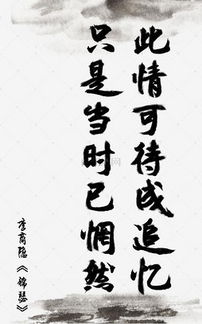 此情可待成追忆
只是当时已惘然
李商隐《锦瑟》